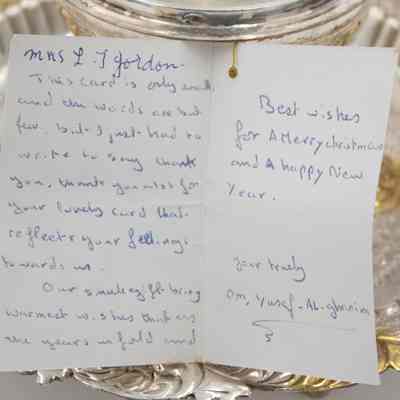 Mrs L. J Gordon.
This card is only small
and the words are but
few. but I just had to
write to say thank
you, thank you also for
your lovely card that
reflects your feelings
towards us.
Our small gift bring
warmest wishes that as
the years unfold and
Best wishes
for A Merry christmas
and A happy New
Year.
your truely
Om, Yusef-